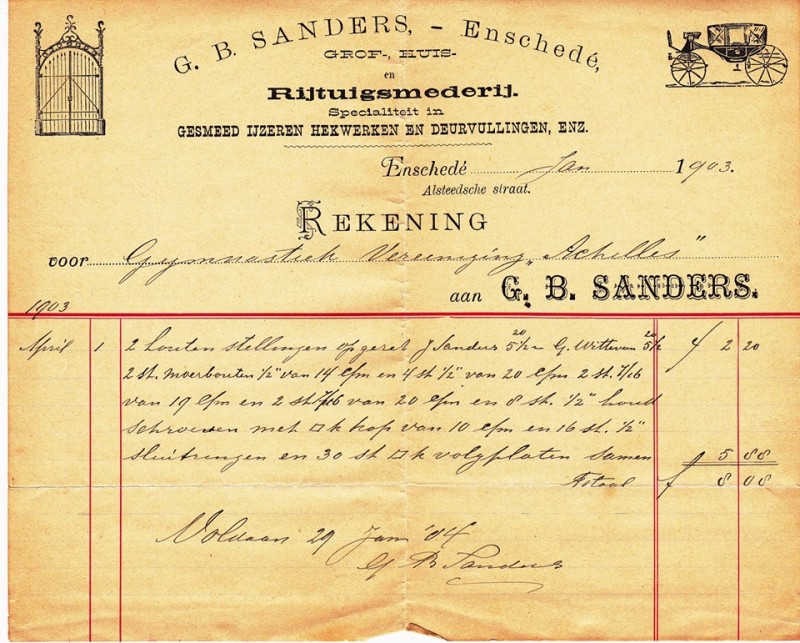 G. B. SANDERS, – Enschedé,
GROF-, HUIS-
en
Rijtuigsmederij.
Specialiteit in
GESMEED IJZEREN HEKWERKEN EN DEURVULLINGEN, ENZ.
Enschedé Jan 1903.
Alsteedsche straat.
REKENING
voor Gymnastiek Vereeniging „Achilles"
aan G. B. SANDERS.
1903
April 1 2 houten stellingen opgezet J Sanders 5½ G. Witteveen 5½ f 2 20
2 st. moerbouten ½" van 14 c/m en 4 st ½" van 20 c/m 2 st. 7/16
van 19 c/m en 2 st 7/16 van 20 c/m en 8 st. ½" houd
schroeven met □k kop van 10 c/m en 16 st. ½"
sluitringen en 30 st □k volgplaten samen f 5 88
Totaal f 8 08
Voldaan 29 Jan '04
G B Sanders